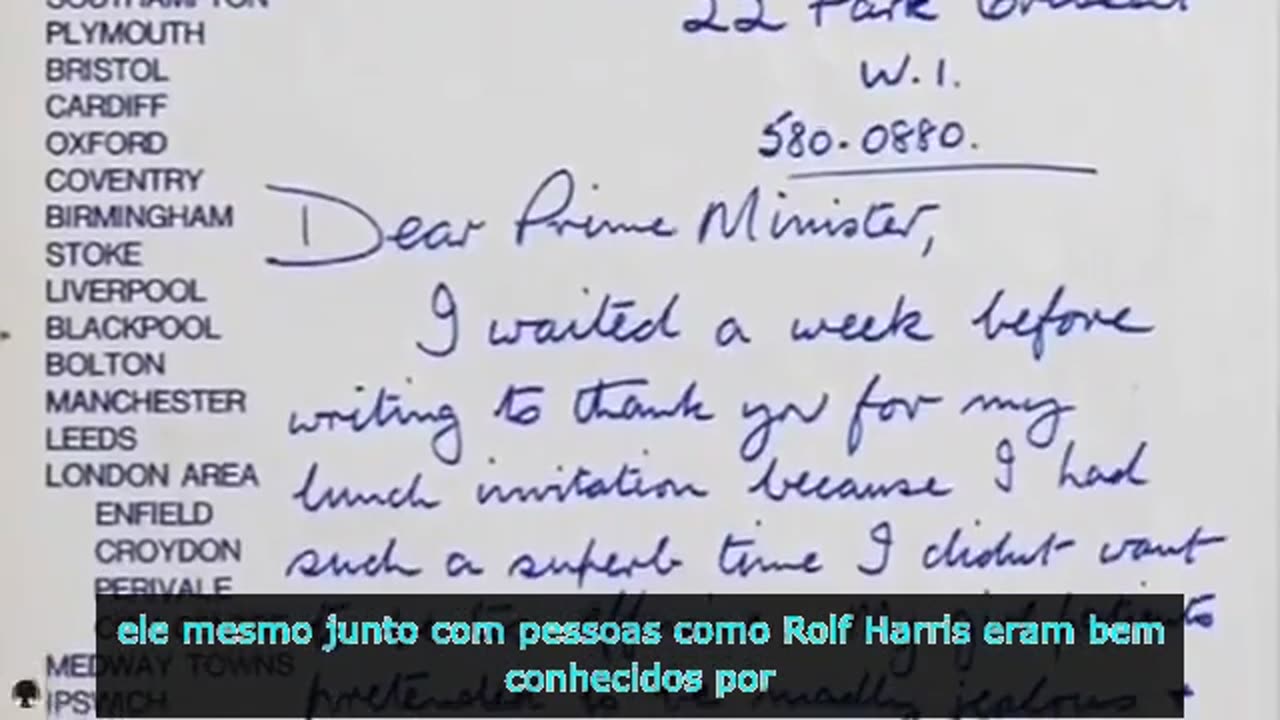 SOUTHAMPTON
PLYMOUTH
BRISTOL
CARDIFF
OXFORD
COVENTRY
BIRMINGHAM
STOKE
LIVERPOOL
BLACKPOOL
BOLTON
MANCHESTER
LEEDS
LONDON AREA
ENFIELD
CROYDON
PERIVALE
MEDWAY TOWNS
IPSWICH
22 Park Crescent
W.1.
580.0880.
Dear Prime Minister,
I waited a week before
writing to thank you for my
lunch invitation because I had
such a superb time I didnt want
my girl patients
pretended to be madly jealous +
ele mesmo junto com pessoas como Rolf Harris eram bem
conhecidos por